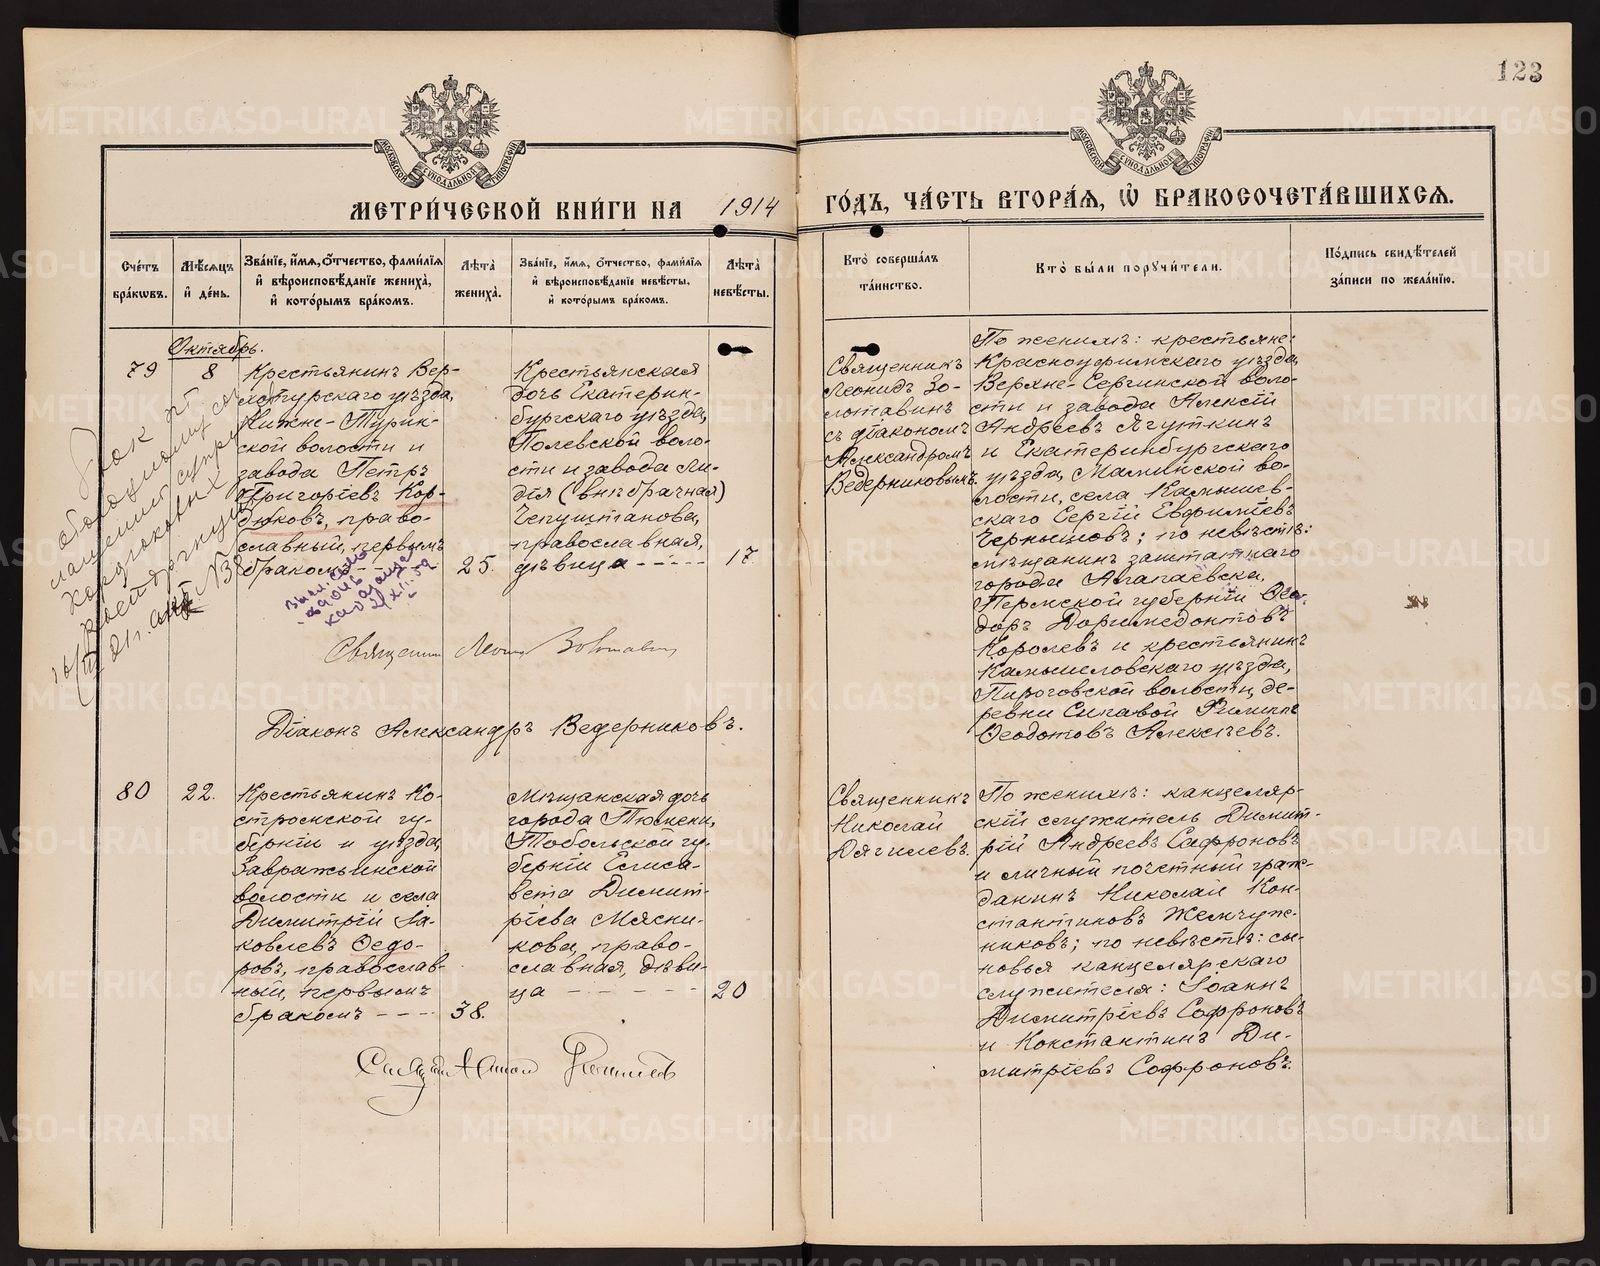 123
МОСКОВСКОЙ СѴНОДАЛЬНОЙ ТИПОГРАФІИ
МОСКОВСКОЙ СѴНОДАЛЬНОЙ ТИПОГРАФІИ
МЕТРИ́ЧЕСКОЙ КНИ́ГИ НА 1914 ГО́ДЪ, ЧА́СТЬ ВТОРА́Я, Ѡ̓ БРАКОСОЧЕТА́ВШИХСЯ.
Сче́тъ
бра́кѡвъ.
Мѣ́сяцъ
и́ де́нь.
Зва́нїе, и́мя, ѻ́тчество, фами́лїя
и́ вѣроисповѣ́данїе жениха̀,
и́ кото́рымъ бра́комъ.
Лѣ́та̀
жениха̀.
Зва́нїе, и́мя, ѻ́тчество, фами́лїя
и́ вѣроисповѣ́данїе невѣ́сты,
и́ кото́рымъ бра́комъ.
Лѣ́та̀
невѣ́сты.
Кто̀ соверша́лъ
та́инство.
Кто̀ бы́ли порꙋчи́тели.
По́дпись свидѣ́телей
за́писи по жела́нїю.
Октябрь.
79
8
Крестьянинъ Вер-
хотурскаго уѣзда,
Нижне-Турин-
ской волости и
завода Петръ
Григоріевъ Кор-
дюковъ, право-
славный, первымъ
бракомъ - - - -
25.
Крестьянская
дочь Екатерин-
бургскаго уѣзда,
Полевской воло-
сти и завода Ли-
дія (внѣбрачная)
Чепуштанова,
православная,
дѣвица - - - - -
17.
Священникъ
Леонидъ Зо-
лотавинъ
съ діакономъ
Александромъ
Ведерниковымъ.
По женихѣ: крестьяне:
Красноуфимскаго уѣзда,
Верхне-Сергинской воло-
сти и завода Алексій
Андреевъ Ягуткинъ
и Екатеринбургскаго
уѣзда, Маминской во-
лости, села Камышев-
скаго Сергій Евфиміевъ
Чернышовъ; по невѣстѣ:
мѣщанинъ заштатнаго
города Алапаевска,
Пермской губерніи Ѳео-
доръ Доримедонтовъ
Королевъ и крестьянинъ
Камышловскаго уѣзда,
Пироговской волости, де-
ревни Силавой Филиппъ
Ѳеодотовъ Алексѣевъ.
Священникъ Леонидъ Золотавинъ
Діаконъ Александръ Ведерниковъ.
80
22.
Крестьянинъ Ко-
стромской гу-
берніи и уѣзда,
Завражьинской
волости и села
Димитрій Іа-
ковлевъ Ѳедо-
ровъ, православ-
ный, первымъ
бракомъ - - - -
38.
Мѣщанская дочь
города Тюмени,
Тобольской гу-
берніи Елиса-
вета Димит-
ріева Мясни-
кова, право-
славная, дѣви-
ца - - - - - -
20
Священникъ
Николай
Дягилевъ.
По женихѣ: канцеляр-
скій служитель Димит-
рій Андреевъ Сафроновъ
и личный почетный граж-
данинъ Николай Кон-
стантиновъ Жемчуж-
никовъ; по невѣстѣ: сы-
новья канцелярскаго
служителя: Іоаннъ
Димитріевъ Софроновъ
и Константинъ Ди-
митріевъ Софроновъ.
METRIKI.GASO-URAL.RU